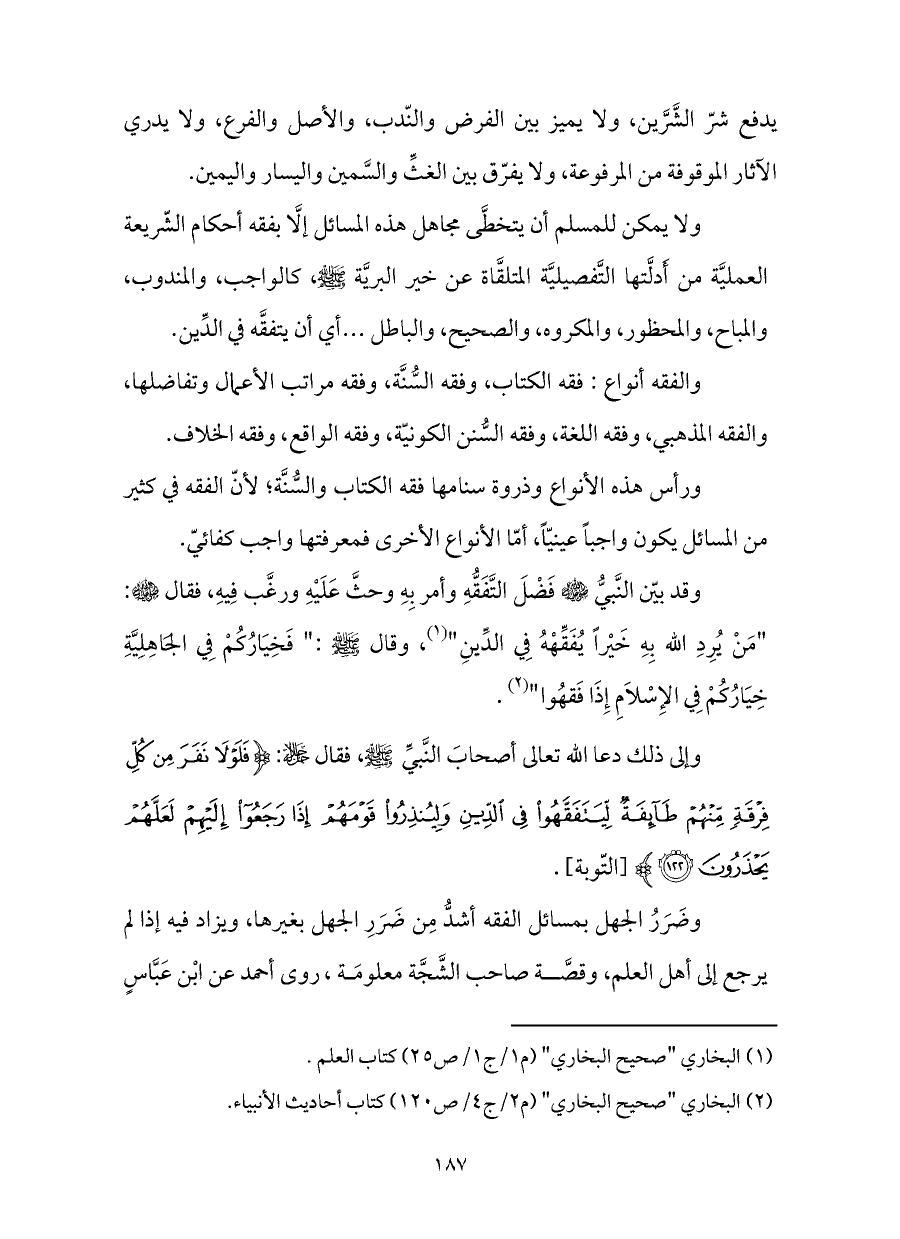 يدفع شرّ الشَّرَّين، ولا يميز بين الفرض والنّدب، والأصل والفرع، ولا يدري
الآثار الموقوفة من المرفوعة، ولا يفرّق بين الغثِّ والسَّمين واليسار واليمين.
ولا يمكن للمسلم أن يتخطَّى مجاهل هذه المسائل إلَّا بفقه أحكام الشّريعة
العمليَّة من أَدلَّتها التَّفصيليَّة المتلقَّاة عن خير البريَّة ﷺ، كالواجب، والمندوب،
والمباح، والمحظور، والمكروه، والصحيح، والباطل ...أي أن يتفقَّه في الدِّين.
والفقه أنواع : فقه الكتاب، وفقه السُّنَّة، وفقه مراتب الأعمال وتفاضلها،
والفقه المذهبي، وفقه اللغة، وفقه السُّنن الكونيّة، وفقه الواقع، وفقه الخلاف.
ورأس هذه الأنواع وذروة سنامها فقه الكتاب والسُّنَّة؛ لأنّ الفقه في كثير
من المسائل يكون واجباً عينيّاً، أمّا الأنواع الأخرى فمعرفتها واجب كفائيّ.
وقد بيّن النَّبيُّ ﷺ فَضْلَ التَّفَقُّهِ وأمر بِهِ وحثَّ عَلَيْهِ ورغَّب فِيهِ، فقال ﷺ:
"مَنْ يُرِدِ الله بِهِ خَيْراً يُفَقِّهْهُ فِي الدِّينِ"(١)، وقال ﷺ :" فَخِيَارُكُمْ فِي الجَاهِلِيَّةِ
خِيَارُكُمْ فِي الإِسْلاَمِ إِذَا فَقهُوا"(٢) .
وإلى ذلك دعا الله تعالى أصحابَ النَّبيِّ ﷺ، فقال ﷻ: ﴿فَلَوْلَا نَفَرَ مِن كُلِّ
فِرْقَةٍ مِّنْهُمْ طَآئِفَةٌ لِّيَتَفَقَّهُواْ فِى ٱلدِّينِ وَلِيُنذِرُواْ قَوْمَهُمْ إِذَا رَجَعُوٓاْ إِلَيْهِمْ لَعَلَّهُمْ
يَحْذَرُونَ ١٢٢﴾ [التّوبة] .
وضَرَرُ الجهل بمسائل الفقه أشدُّ مِن ضَرَرِ الجهل بغيرها، ويزاد فيه إذا لم
يرجع إلى أهل العلم، وقصَّـــة صاحب الشَّجَّة معلومَـة ، روى أحمد عن ابْن عَبَّاسٍ
(١) البخاري "صحيح البخاري" (م١/ ج١/ ص٢٥) كتاب العلم .
(٢) البخاري "صحيح البخاري" (م٢/ ج٤/ ص١٢٠) كتاب أحاديث الأنبياء.
١٨٧